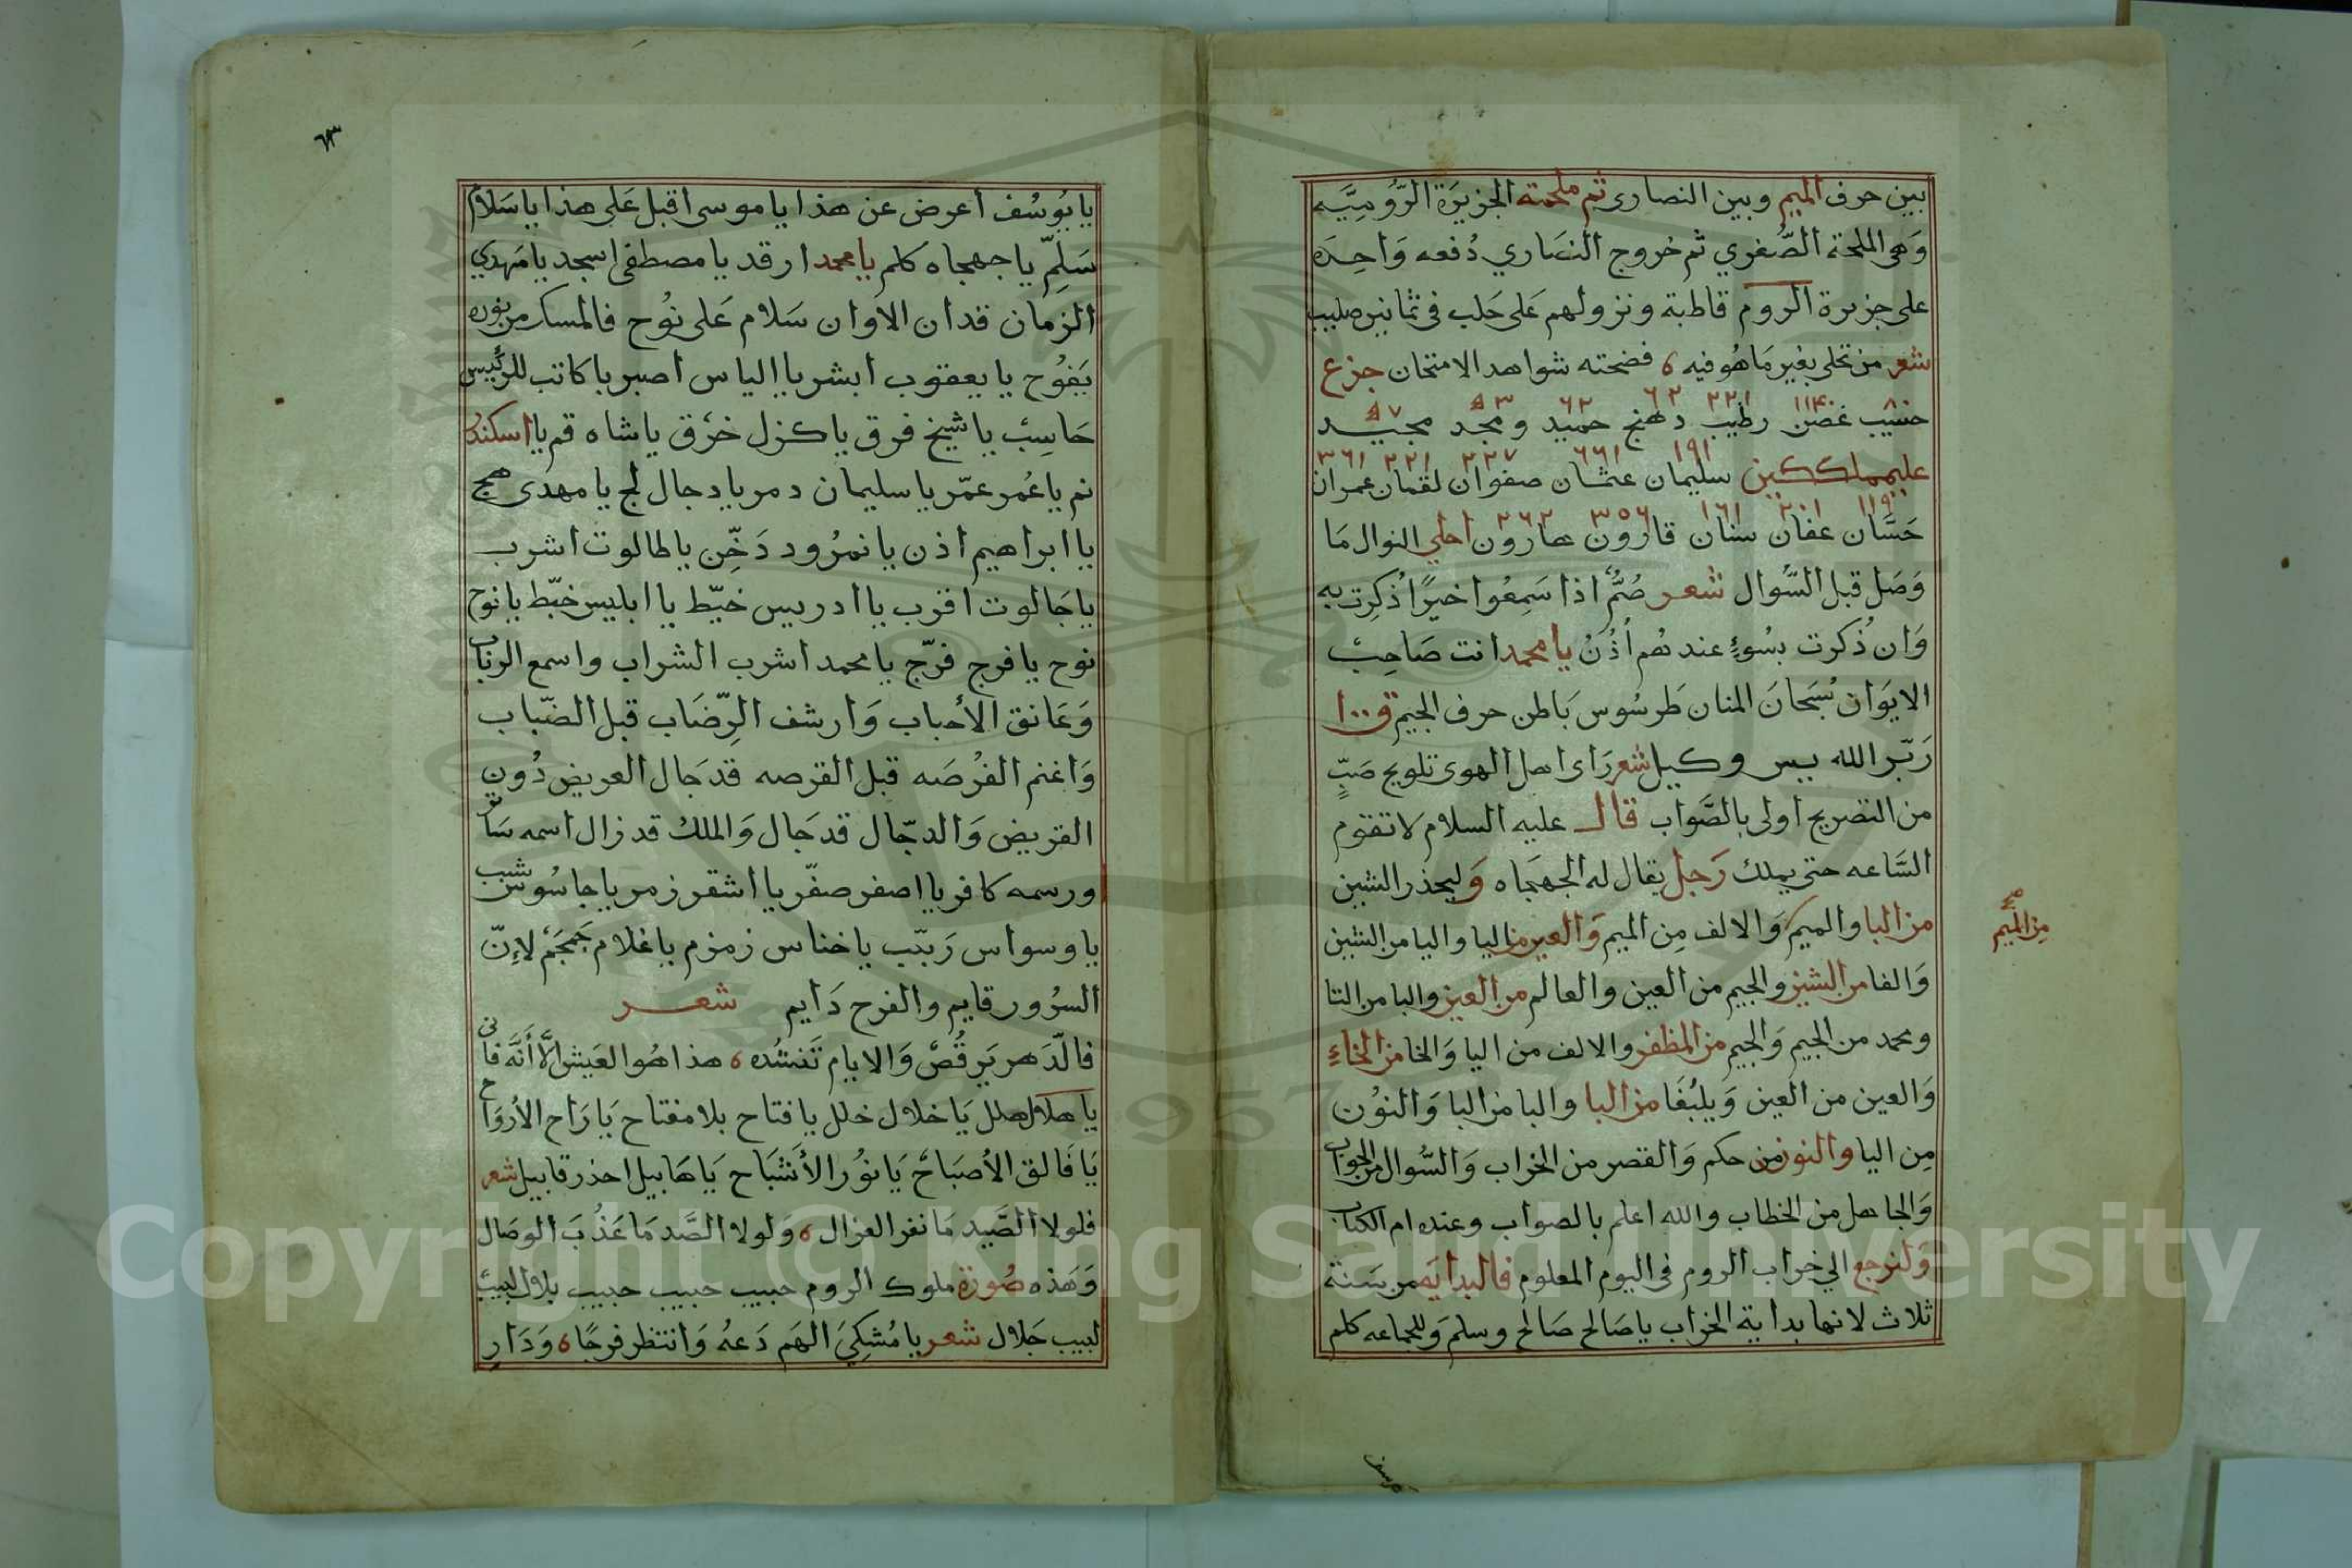 بين حرف الميم وبين النصارى ثم ملحمته الجزيرة الرُّوميَّه
وَهي الملحمة الصُّغري ثم خروج النصَاري دُفعه وَاحِده
على جزيرة الروم قاطبة ونزولهم عَلى حَلب في ثمانين صليب
شعر من تحلى بغير مَا هُو فيه ٥ فضحته شواهد الامتحان جزع
٨٠ ١١٤٠ ٢٢١ ٦٢ ٦٢ ٥٣ ٥٧
حسيب غصن رطيب دهنج حميد ومجد مجيد
١٩١ ٦٦١ ٢٢٧ ٢٢١ ٣٦١
سليمان عثمان صفوان لقمان عمران
١١٩ ٢٠١ ١٦١ ٣٥٦ ٢٦٢
حَسَّان عفان سنان قارون هارون احلي النوال مَا
وَصَل قبل السَّوال شعر صُمٌّ اذا سَمِعُوا خيرًا ذُكِرت به
وَان ذُكرت بسُوءٍ عندهُم أُذُنُ يا محمد انت صَاحِب
الايوَان سُبَحانَ المنان طَرسُوس بَاطن حرف الجيم ق ١٠٠
رَبّر الله بيس وكيل شعر رَاى اهل الهوى تلويح صَبٍّ
من التصريح اولى بالصَّواب قال عليه السلام لا تقوم
السَّاعه حتى يملك رَجل يقال له الجهجَاه وَليحذر الشين
من البا والميم وَالالف مِن الميم وَالعين من اليا واليا من الشين
مِن الميم
صح
وَالفا من الشين والجيم من العين والعالم من العين والبا من التا
ومحمد من الجيم وَالجيم من المظفر والالف من اليا وَالخا من الخاءِ
وَالعين من العين وَيلبُغَا من البا والبا من البا وَالنوُن
مِن اليا والنون من حكم وَالقصر من الخراب وَالسُّوال من الجواب
وَالجاهل من الخطاب والله اعلم بالصواب وعنده ام الكتاب
وَلنرجع الي خراب الروم في اليوم المعلوم فالبدايَه من سَنة
ثلاث لانها بداية الخراب يا صَالح صَالح وسلمَ وَللجماعه كلم
يا يوسف
٦٣
يا يُوسُف أعرض عن هذا يا موسى اقبل عَلى هذا يا سَلام
سَلِمّ يا جهجاه كلم يا محمد ارقد يا مصطفى اسجد يا مَهدي
الزمَان قد ان الاوان سَلام عَلى نُوح فالمسك من نوره
يَفوُح يا يعقوب أبشر يا الياس اصبر يا كاتب للرئيس
حَاسِب يا شيخ فرق يا كزل خرّق يا شاه قم يا اسكندر
نم يا عُمر عمّر يا سليمان دمر يا دجال لج يا مهدى حج
يا ابراهيم اذن يا نمرُود دَخِّن يا طالوت اشرب
يا جَالوت اقرب يا ادريس خيّط يا ابليس خبّط يا نوح
نوح يا فرج فرّج يا محمد اشرب الشراب واسمع الرباب
وَعَانق الأحباب وَارشف الرِّضَاب قبل الضّباب
وَاغنم الفُرصَه قبل القرصه قد جَال العريض دُون
القريض وَالدجّال قد جَال وَالملك قد زال اسمه سَاتر
ورسمه كافر يا اصفر صفّر يا اشقر زمر يا جاسُوس شبب
يا وسواس رَبّب يا خناس زمزم يا غلام جَمجَم لاِنّ
السرُور قايم والفرح دَايم شعر
فالدَّهر يَرقُصُ وَالايام تَنشُده ٥ هذا هُو العَيش الاَّ أنَّه فانى
يا هلال هلل يَا خلال خلل يا فتاح بلا مفتاح يَا رَاح الأروَاح
يَا فَالق الأصبَاحَ يَا نوُر الأشبَاح يَا هَابيل احذر قابيل شعر
فلولا الصَّيد مَا نفر الغزال ٥ وَلولا الصَّد مَا عَذُبَ الوصَال
وَهَذه صُورة ملوك الروم حبيب حبيب حبيب بلال لبيب
لبيب جَلال شعر يا مُشكِيَ الهَم دَعهُ وَانتظر فرجًا ٥ وَدَارِ
Copyright © King Saud University
1957